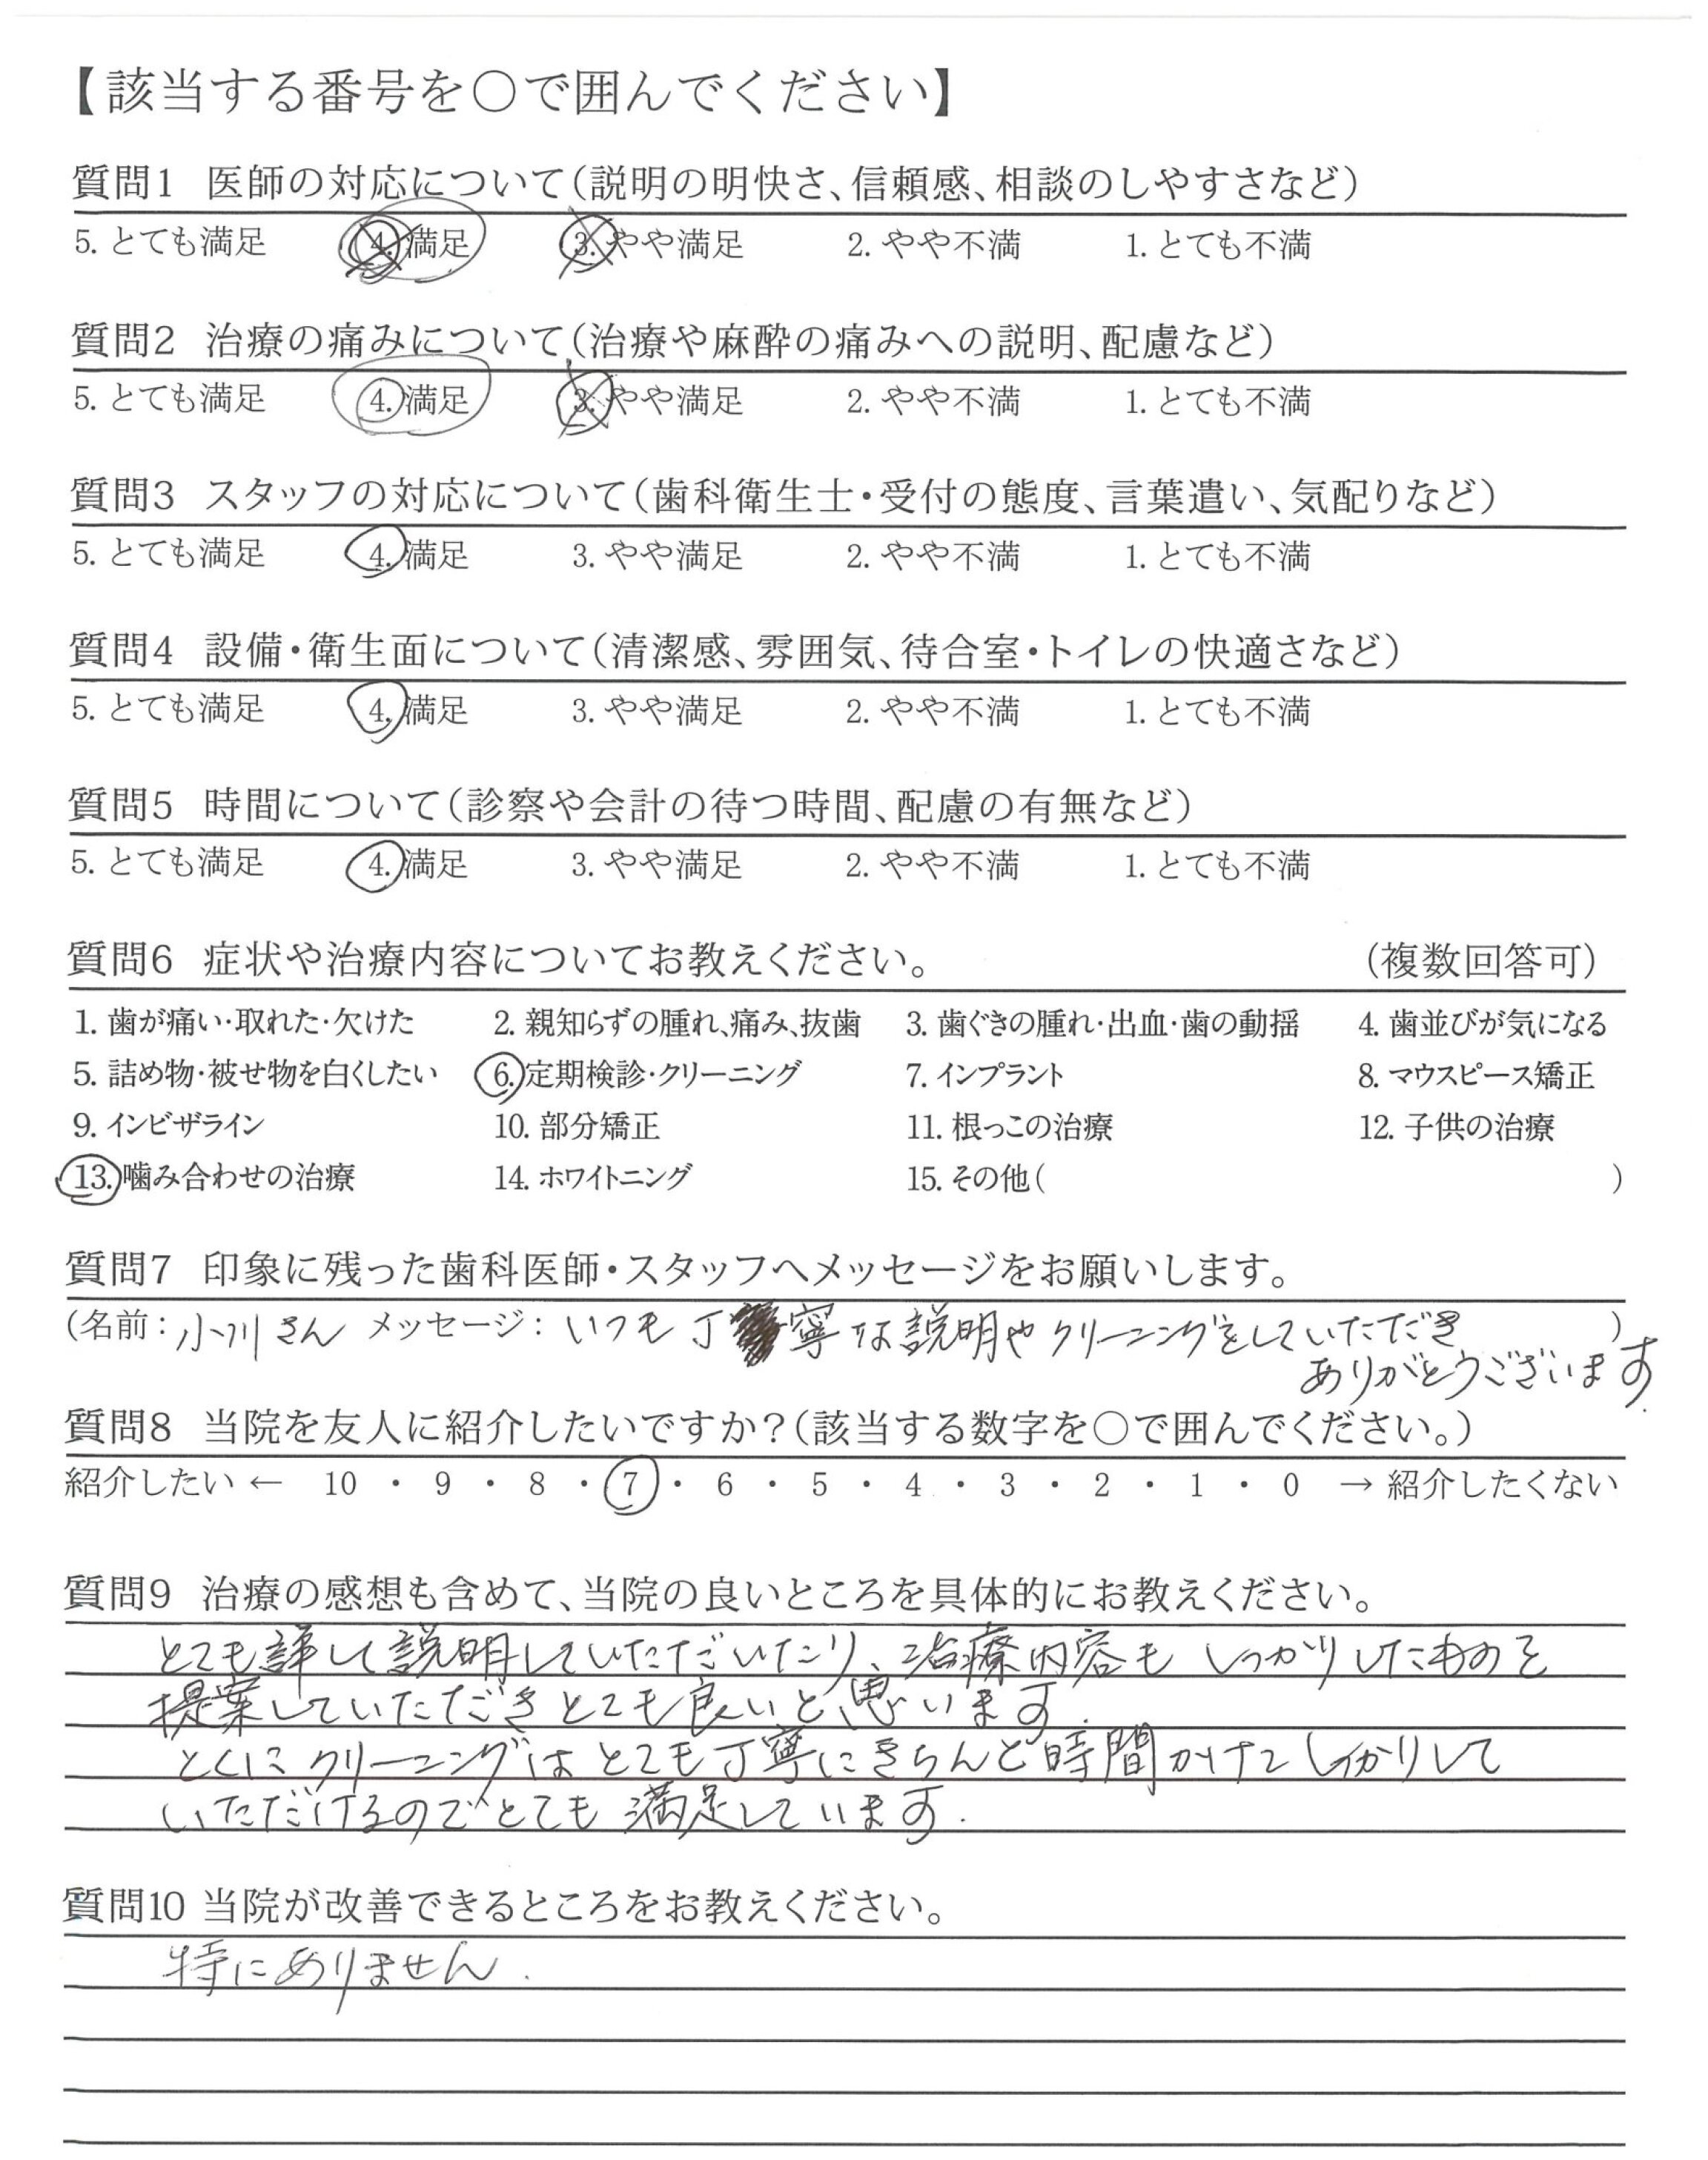 【該当する番号を〇で囲んでください】
質問1 医師の対応について(説明の明快さ、信頼感、相談のしやすさなど)
5. とても満足 4. 満足 3. やや満足 2. やや不満 1. とても不満
質問2 治療の痛みについて(治療や麻酔の痛みへの説明、配慮など)
5. とても満足 4. 満足 3. やや満足 2. やや不満 1. とても不満
質問3 スタッフの対応について(歯科衛生士・受付の態度、言葉遣い、気配りなど)
5. とても満足 4. 満足 3. やや満足 2. やや不満 1. とても不満
質問4 設備・衛生面について(清潔感、雰囲気、待合室・トイレの快適さなど)
5. とても満足 4. 満足 3. やや満足 2. やや不満 1. とても不満
質問5 時間について(診察や会計の待つ時間、配慮の有無など)
5. とても満足 4. 満足 3. やや満足 2. やや不満 1. とても不満
質問6 症状や治療内容についてお教えください。 (複数回答可)
1. 歯が痛い・取れた・欠けた 2. 親知らずの腫れ、痛み、抜歯 3. 歯ぐきの腫れ・出血・歯の動揺 4. 歯並びが気になる
5. 詰め物・被せ物を白くしたい 6. 定期検診・クリーニング 7. インプラント 8. マウスピース矯正
9. インビザライン 10. 部分矯正 11. 根っこの治療 12. 子供の治療
13. 噛み合わせの治療 14. ホワイトニング 15. その他( )
質問7 印象に残った歯科医師・スタッフへメッセージをお願いします。
(名前：小川さん メッセージ：いつも丁寧な説明やクリーニングをしていただき )
ありがとうございます.
質問8 当院を友人に紹介したいですか？(該当する数字を〇で囲んでください。)
紹介したい ← 10 ・ 9 ・ 8 ・ 7 ・ 6 ・ 5 ・ 4 ・ 3 ・ 2 ・ 1 ・ 0 → 紹介したくない
質問9 治療の感想も含めて、当院の良いところを具体的にお教えください。
とても詳しく説明していただいたり、治療内容もしっかりしたものを
提案していただきとても良いと思います.
とくにクリーニングはとても丁寧にきちんと時間かけてしっかりして
いただけるのでとても満足しています.
質問10 当院が改善できるところをお教えください。
特にありません.